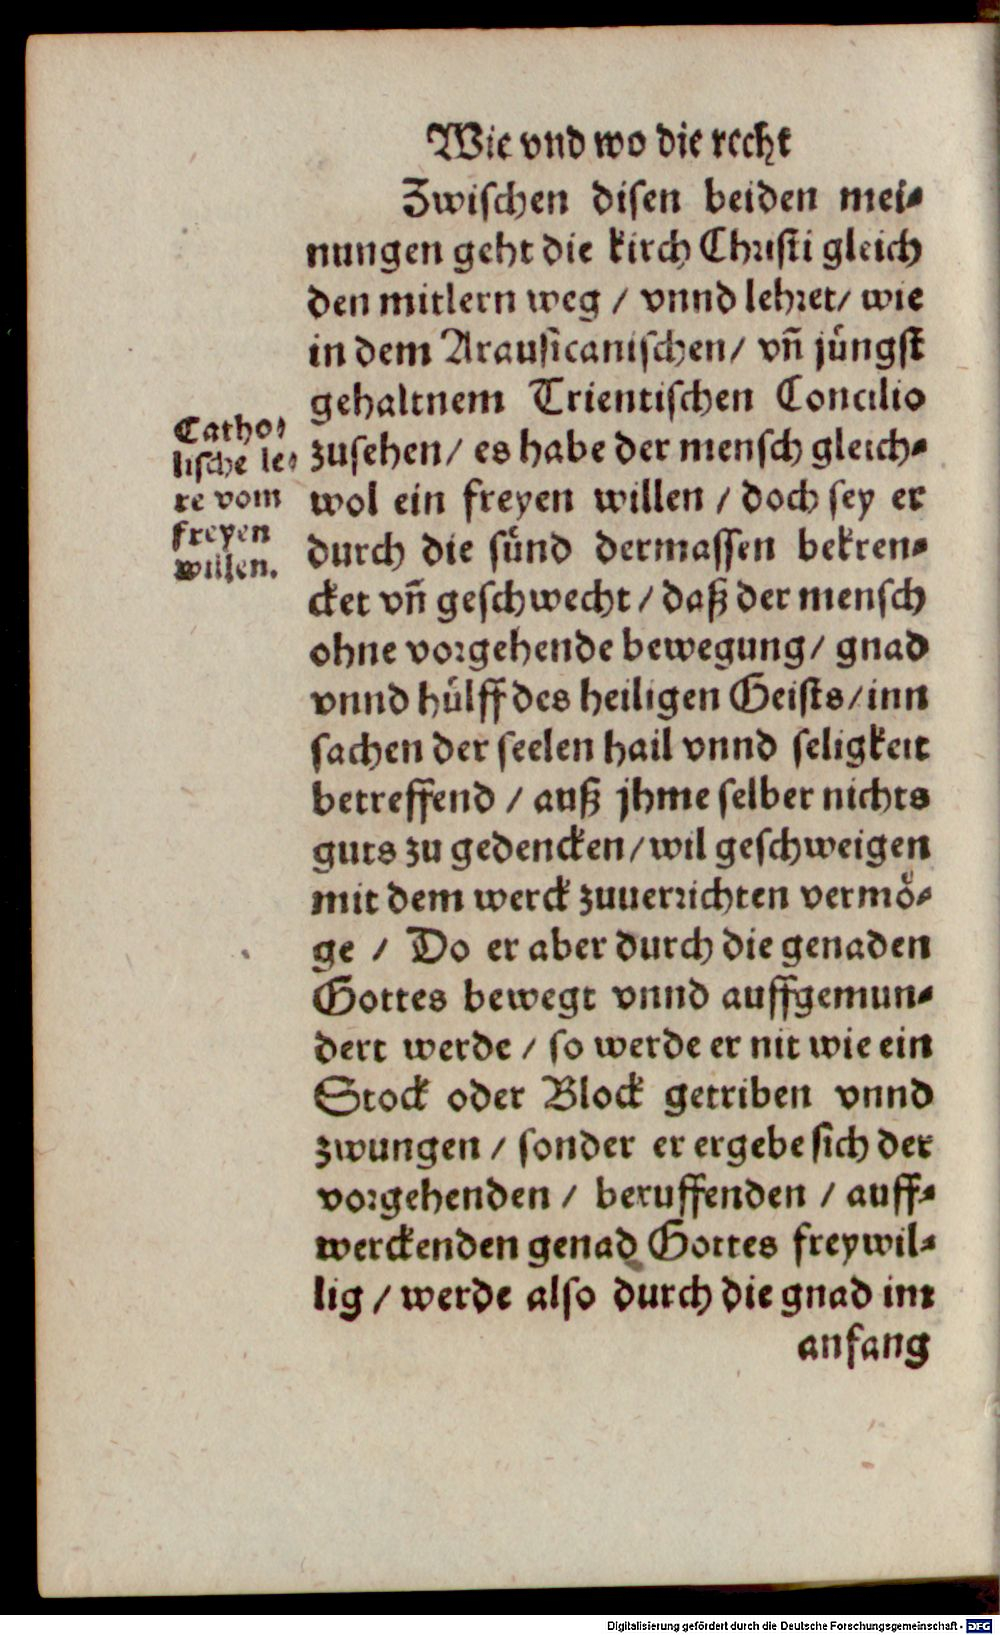 Wie vnd wo die recht
Zwischen disen beiden mei⸗
nungen geht die kirch Christi gleich
den mitlern weg / vnnd lehret/ wie
in dem Arausicanischen/ vñ jüngst
gehaltnem Trientischen Concilio
zusehen/ es habe der mensch gleich⸗
wol ein freyen willen / doch sey er
durch die sünd dermassen bekren⸗
cket vñ geschwecht / daß der mensch
ohne vorgehende bewegung/ gnad
vnnd hülff des heiligen Geists/ inn
sachen der seelen hail vnnd seligkeit
betreffend / auß jhme selber nichts
guts zu gedencken/ wil geschweigen
mit dem werck zuuerrichten vermö⸗
ge / Do er aber durch die genaden
Gottes bewegt vnnd auffgemun⸗
dert werde / so werde er nit wie ein
Stock oder Block getriben vnnd
zwungen / sonder er ergebe sich der
vorgehenden / beruffenden / auff⸗
werckenden genad Gottes freywil⸗
lig / werde also durch die gnad im
anfang
Catho⸗
lische le⸗
re vom
freyen
willen.
Digitalisierung gefördert durch die Deutsche Forschungsgemeinschaft - DFG